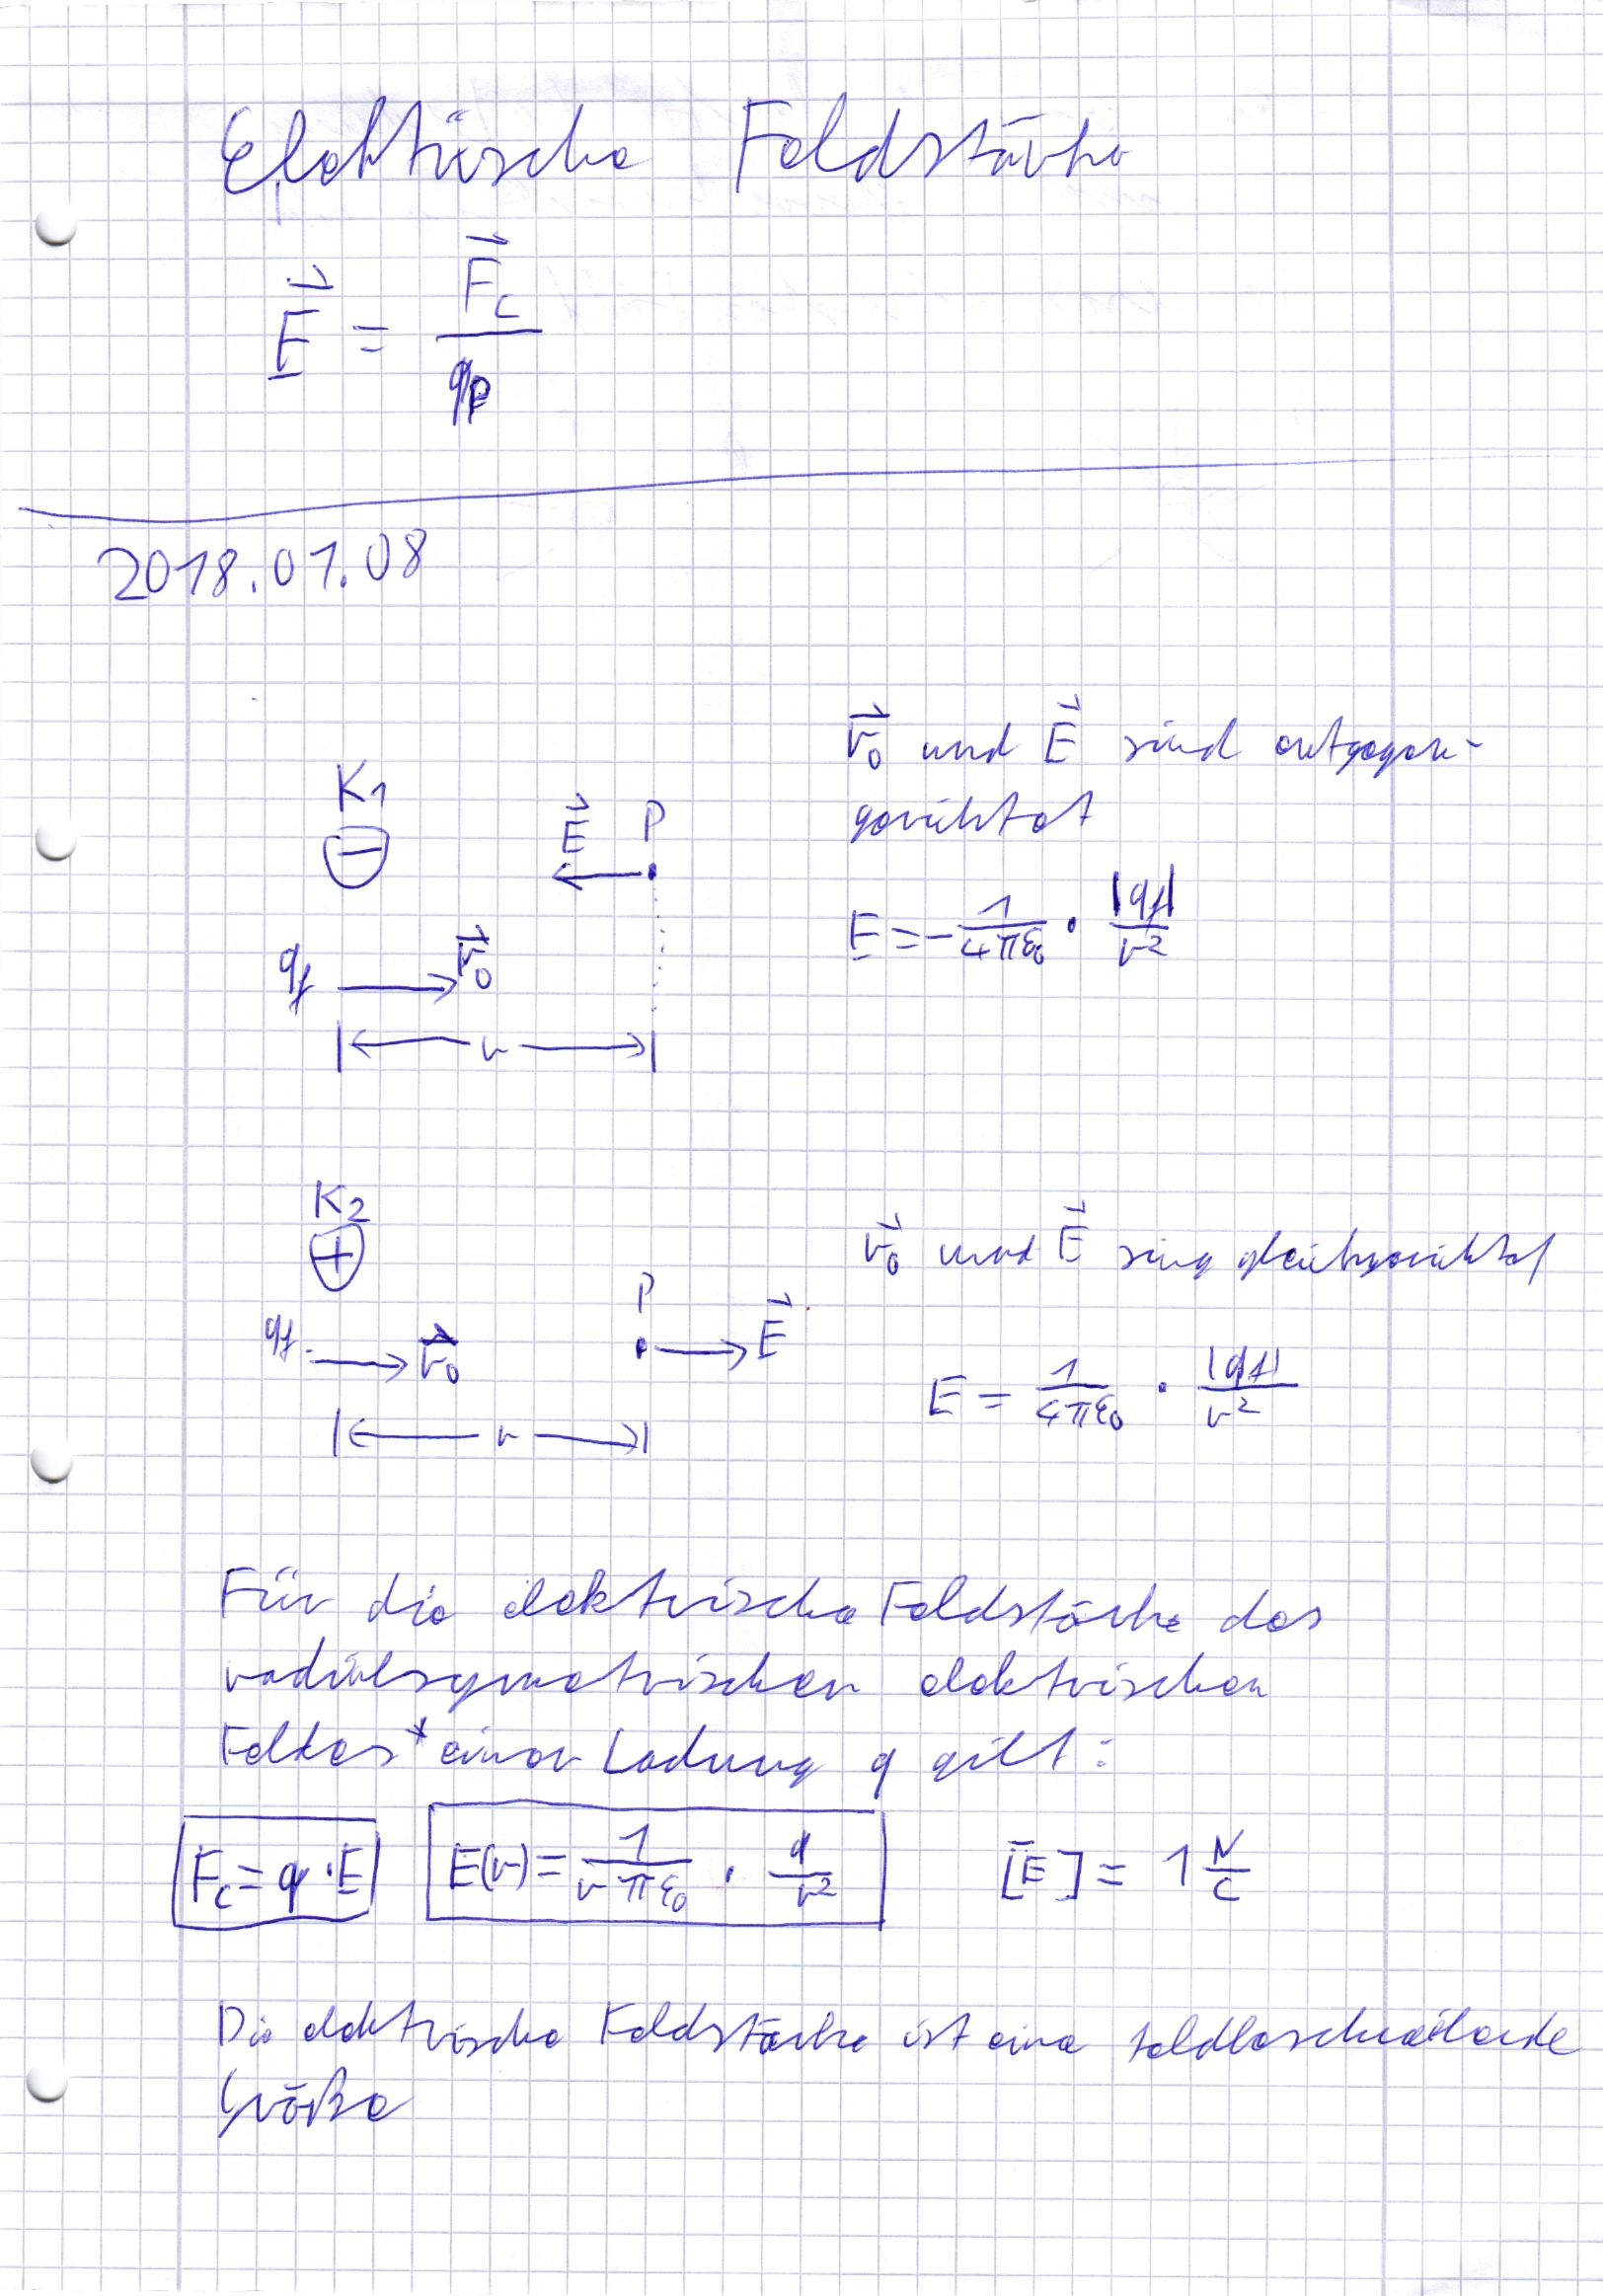 Elektrische Feldstärke
E⃗ = F⃗c / qp
2018.01.08
r⃗0 und E⃗ sind entgegen-
gerichtet
K1
E⃗ P
E = - 1/4πε0 · |qf|/r²
qf r⃗0
r
K2
r⃗0 und E⃗ sing gleichgerichtet
P
qf r⃗0 E⃗
E = 1/4πε0 · |qf|/r²
r
Für die elektrische Feldstärke des
radialsymetrischen elektrischen
Feldes* einer Ladung q gilt:
Fc = q · E E(r) = 1/rπε0 · q/r² [E] = 1 N/C
Die elektrische Feldstärke ist eine feldbeschreibende
Größe